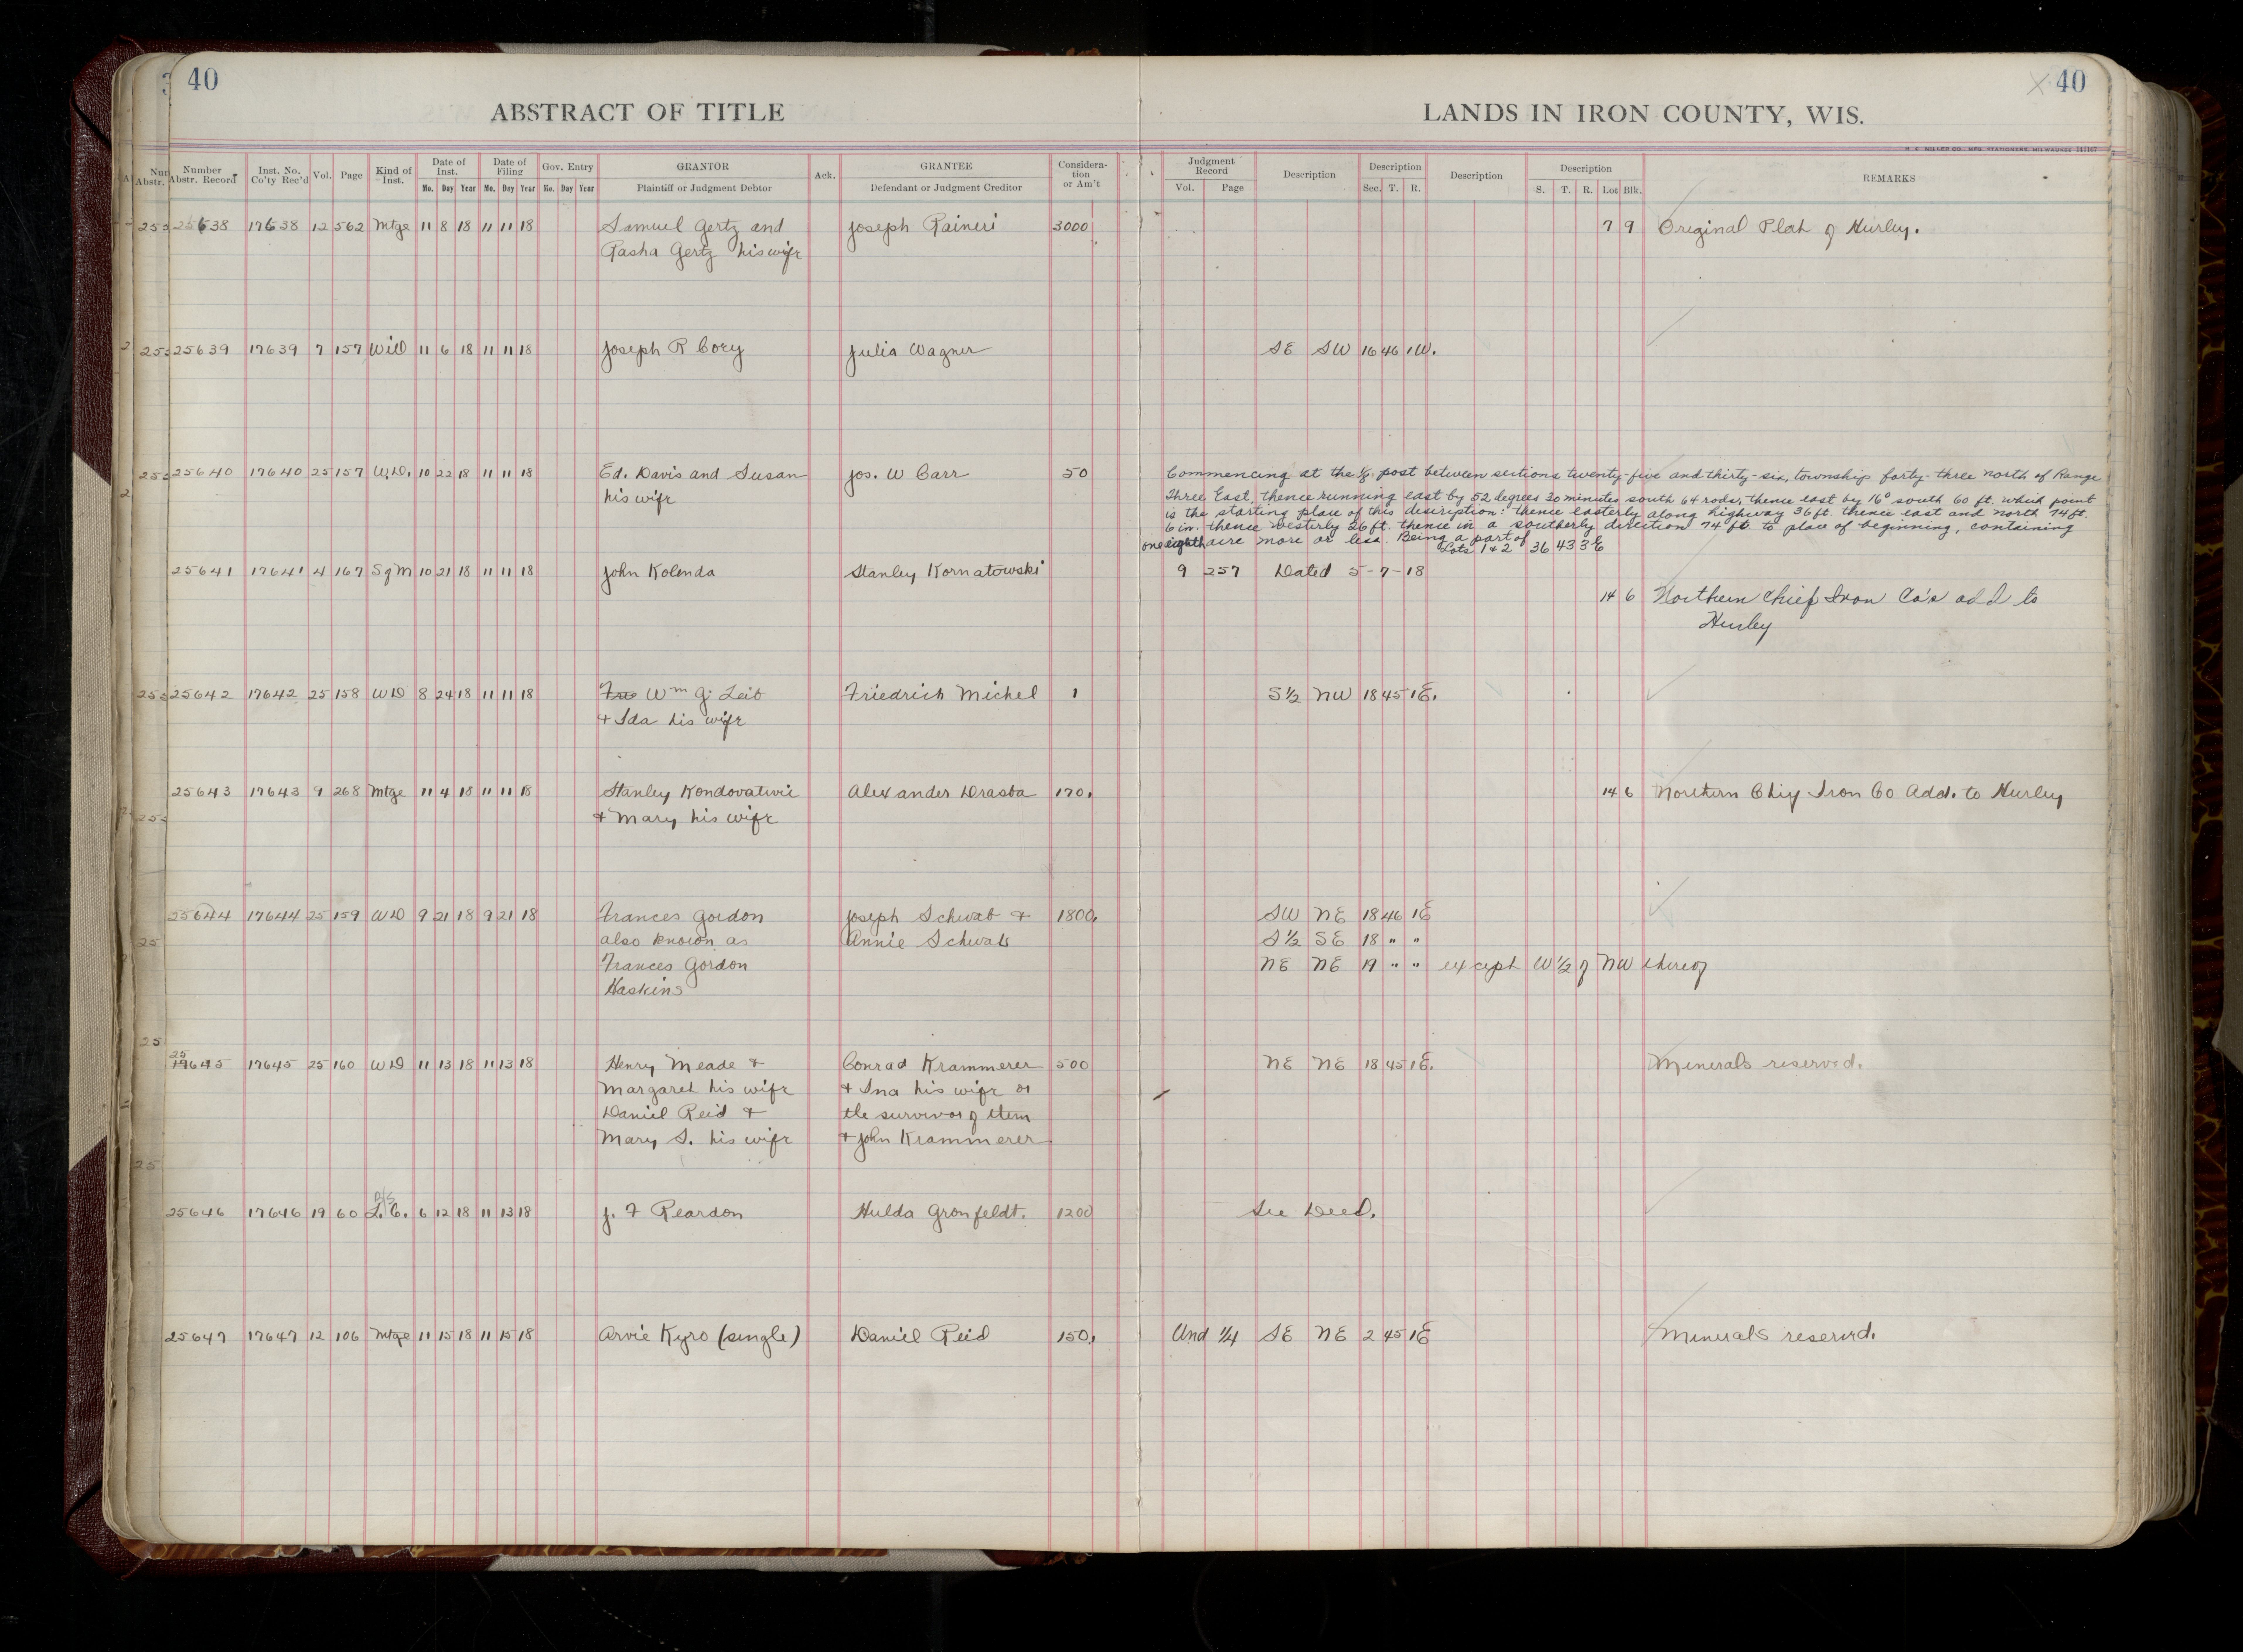 40
ABSTRACT OF TITLE
LANDS IN IRON COUNTY, WIS.
40
Number Abstr. Record
Inst. No. Co'ty Rec'd
Vol.
Page
Kind of Inst.
Date of Inst. Mo. Day Year
Date of Filing Mo. Day Year
Gov. Entry No. Day Year
GRANTOR Plaintiff or Judgment Debtor
Ack.
GRANTEE Defendant or Judgment Creditor
Considera-tion or Am't
Judgment Record Vol. Page
Description
Description Sec. T. R.
Description
Description S. T. R. Lot Blk.
REMARKS
25638 17638 12 562 Mtge 11 8 18 11 11 18 Samuel Gertz and Joseph Raineri 3000 7 9 Original Plat of Hurley.
Pasha Gertz his wife
25639 17639 7 157 Will 11 6 18 11 11 18 Joseph R Cory Julia Wagner SE SW 16 46 1W.
25640 17640 25 157 W.D. 10 22 18 11 11 18 Ed. Davis and Susan Jos. W Carr 50 Commencing at the 1/8 post between sections twenty-five and thirty-six, township forty-three north of Range
his wife Three East, thence running east by 52 degrees 30 minutes south 64 rods, thence east by 16° south 60 ft. which point
is the starting place of this description: thence easterly along highway 36 ft. thence east and north 74 ft.
6 in. thence westerly 26 ft. thence in a southerly direction 74 ft to place of beginning, containing
one eighth acre more or less. Being a part of
Lots 1 & 2 36 43 3E
25641 17641 4 167 Sgm 10 21 18 11 11 18 John Kolenda Stanley Kornatowski 9 257 Dated 5-7-18
14 6 Northern Chief Iron Co's add to
Hurley
25642 17642 25 158 WD 8 24 18 11 11 18 Fre Wm G. Leib Friedrich Michel 1 S 1/2 NW 18 45 1E.
+ Ida his wife
25643 17643 9 268 Mtge 11 4 18 11 11 18 Stanley Kondovativic Alexander Drasba 170. 14 6 Northern Chief Iron Co Add. to Hurley
+ Mary his wife
25644 17644 25 159 WD 9 21 18 9 21 18 Frances Gordon Joseph Schwab + 1800. SW NE 18 46 1E
also known as Annie Schwab S 1/2 SE 18 " "
Frances Gordon NE NE 19 " " except W 1/2 of NW thereof
Haskins
25
19645 17645 25 160 WD 11 13 18 11 13 18 Henry Meade + Conrad Krammerer 500 NE NE 18 45 1E. Minerals reserved.
Margaret his wife + Ina his wife or
Daniel Reid + the survivor of them
Mary S. his wife + John Krammerer
25646 17646 19 60 L.C. 6 12 18 11 13 18 J. F Reardon Hulda Gronfeldt. 1200 See Deed.
25647 17647 12 106 Mtge 11 15 18 11 15 18 Arvie Kyro (single) Daniel Reid 150. Und 1/4 SE NE 2 45 1E Minerals reserved.